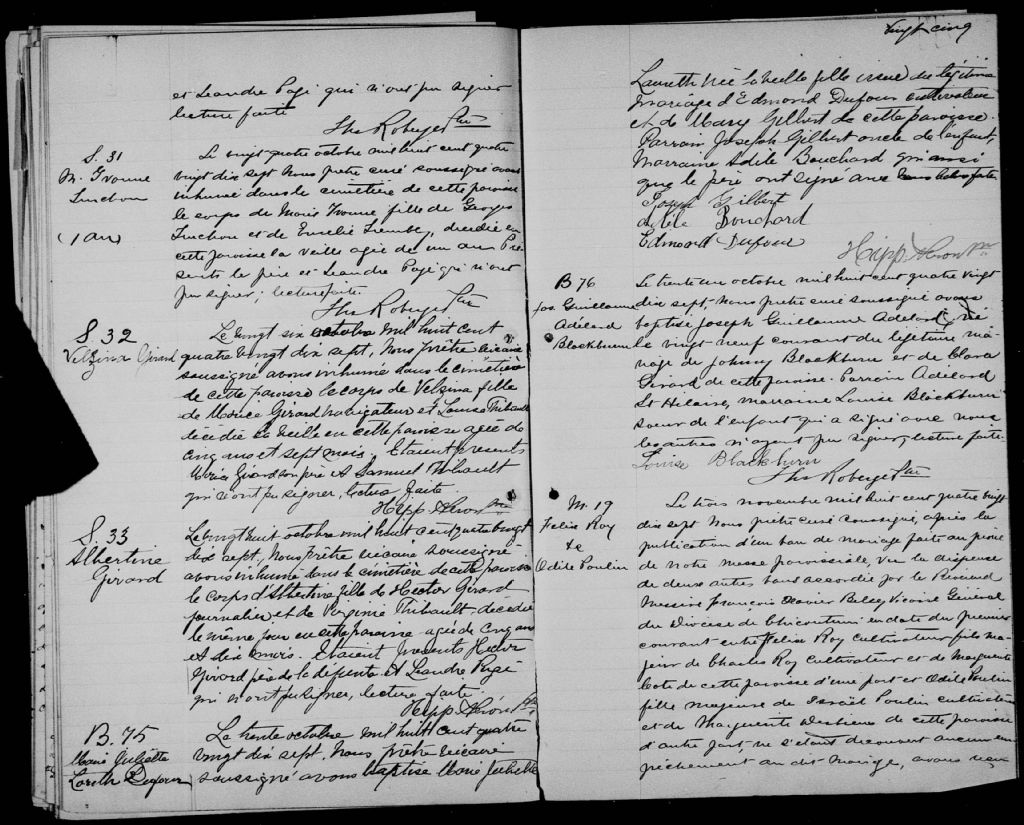 et Leandre Pagé qui n'ont pu signer
lecture faite
Ths Roberge Ptre
S. 31
M. Ivonne
Truchon
(1 an)
Le vingt quatre octobre mil huit cent quatre
vingt dix sept Nous prêtre curé soussigné avons
inhumé dans le cimetière de cette paroisse
le corps de Marie Ivonne fille de Georges
Truchon et de Emelie Tremb., decedée en
cette paroisse la veille agée de un an Pré
sents le père et Leandre Pagé qui n'ont
pu signer; lecture faite
Ths Roberge Ptre
S. 32
Velzina Girard
Le vingt six octobre mil huit cent
quatre vingt dix sept, Nous prêtre vicaire
soussigné avons inhumé dans le cimetière
de cette paroisse le corps de Velzina fille
de Girard navigateur et Louise Thibault
décédée la veille en cette paroisse agée de
cinq ans et sept mois. Etaient présents
Girard son père et Samuel Thibault
qui n'ont pu signer, lecture faite.
Hipp Ptre
S. 33
Albertine
Girard
Le vingt huit octobre mil huit cent quatre vingt
dix sept, Nous prêtre vicaire soussigné
avons inhumé dans le cimetière de cette paroisse
le corps d'Albertine fille de Hector Girard
journalier et de Virginie Thibault décédée
le même jour en cette paroisse agée de cinq ans
et dix mois. Etaient présents Hector
Girard père de la défunte et Leandre Pagé
qui n'ont pu signer, lecture faite.
Hipp Ptre
B. 75
Marie Juliette
Laureth Dufour
Le trente octobre mil huit cent quatre
vingt dix sept, Nous prêtre vicaire
soussigné avons baptisé Marie Juliette
Vingt cinq
Laureth née la veille fille issue du légitime
mariage d'Edmond Dufour cultivateur
et de Mary Gilbert de cette paroisse.
Parrain Joseph Gilbert oncle de l'enfant,
Marraine Adele Bouchard qui ainsi
que le père ont signé avec nous lecture faite.
Joseph Gilbert
Adèle Bouchard
Edmond Dufour
Hipp Ptre
B 76
Jos. Guillaume
Adélard
Blackburn
Le trente un octobre mil huit cent quatre vingt
dix sept, Nous prêtre curé soussigné avons
baptisé Joseph Guillaume Adélard, né
le vingt neuf courant du légitime ma-
riage de Johnny Blackburn et de Clara
Girard de cette paroisse. Parrain Adélard
St Hilaire, marraine Louise Blackburn
soeur de l'enfant qui a signé avec nous
les autres n'ayant pu signer, lecture faite.
Louise Blackburn
Ths Roberge Ptre
M. 19
Felix Roy
&
Odile Poulin
Le trois novembre mil huit cent quatre vingt
dix sept Nous prêtre curé soussigné, après la
publication d'un ban de mariage faite au prône
de notre messe paroissiale, vu la dispense
de deux autres bans accordée par le Révérend
Messire François Xavier Belley Vicaire Général
du Diocèse de Chicoutimi en date du premier
courant entre Felix Roy cultivateur fils ma-
jeur de Charles Roy cultivateur et de Marguerite
Coté de cette paroisse d'une part et Odile Poulin
fille majeure de Israël Poulin cultivateur
et de Marguerite de cette paroisse
d'autre part, ne s'étant découvert aucun em-
pêchement au dit mariage, avons reçu